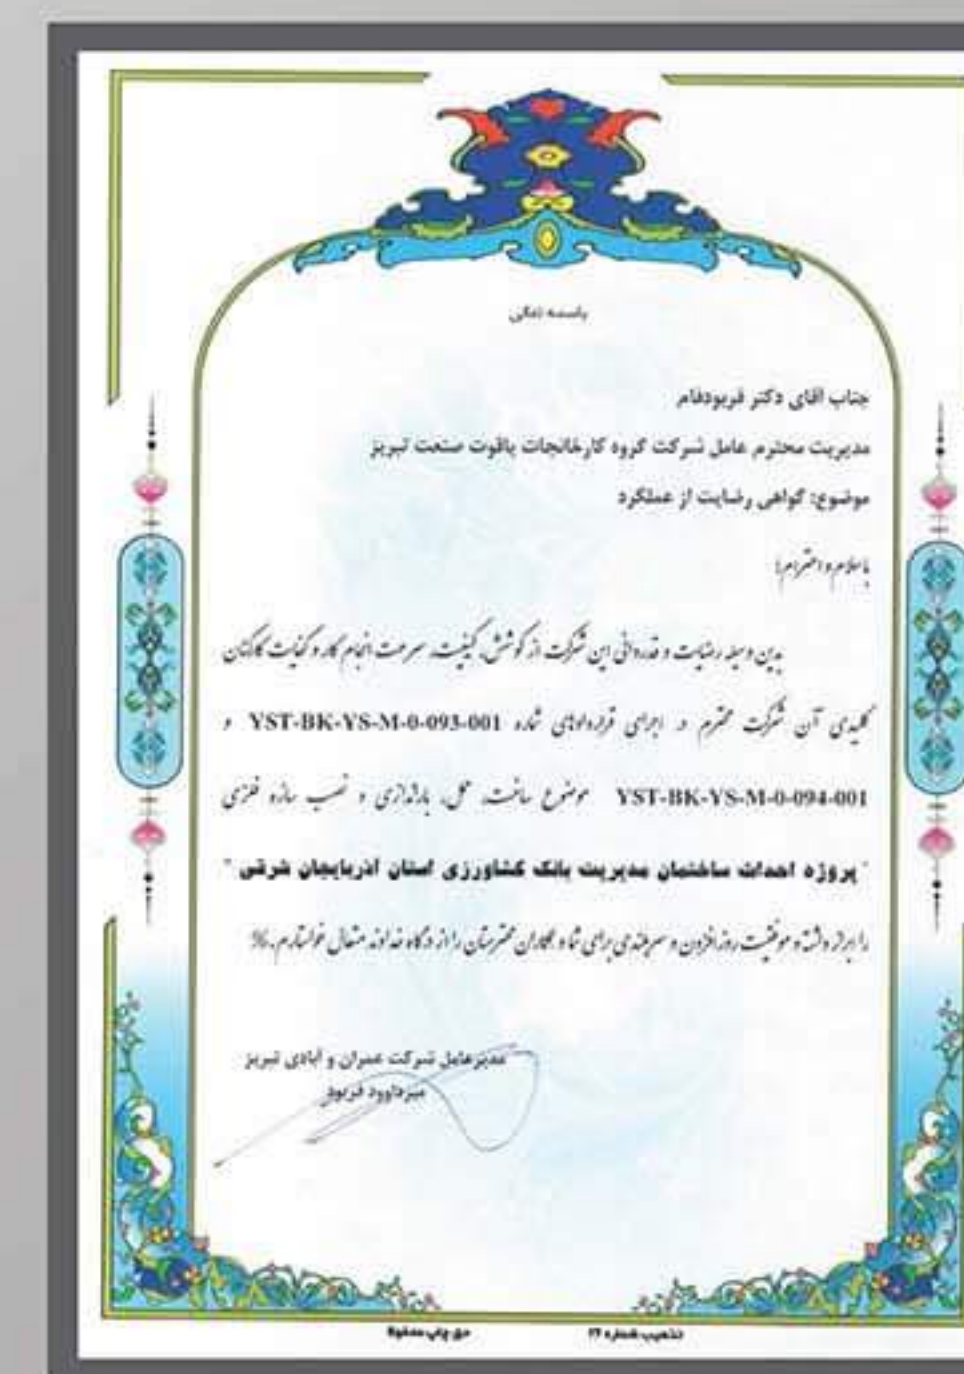 باسمه تعالی
جناب آقای دکتر فربودفام
مدیریت محترم عامل شرکت گروه کارخانجات یاقوت صنعت تبریز
موضوع: گواهی رضایت از عملکرد
با سلام و احترام؛
بدین وسیله رضایت و قدردانی این شرکت از کوشش، کیفیت، سرعت انجام کار و کفایت کارکنان
کلیدی آن شرکت محترم در اجرای قراردادهای شماره YST-BK-YS-M-0-093-001 و
YST-BK-YS-M-0-094-001 موضوع ساخت، حمل، باراندازی و نصب سازه فلزی
" پروژه احداث ساختمان مدیریت بانک کشاورزی استان آذربایجان شرقی "
را ابراز داشته و موفقیت روزافزون و سربلندی برای شما و همکاران محترمتان را از درگاه خداوند متعال خواستارم.
مدیرعامل شرکت عمران و آبادی تبریز
میرداوود فربود
تذهیب شماره ۲۶ حق چاپ محفوظ